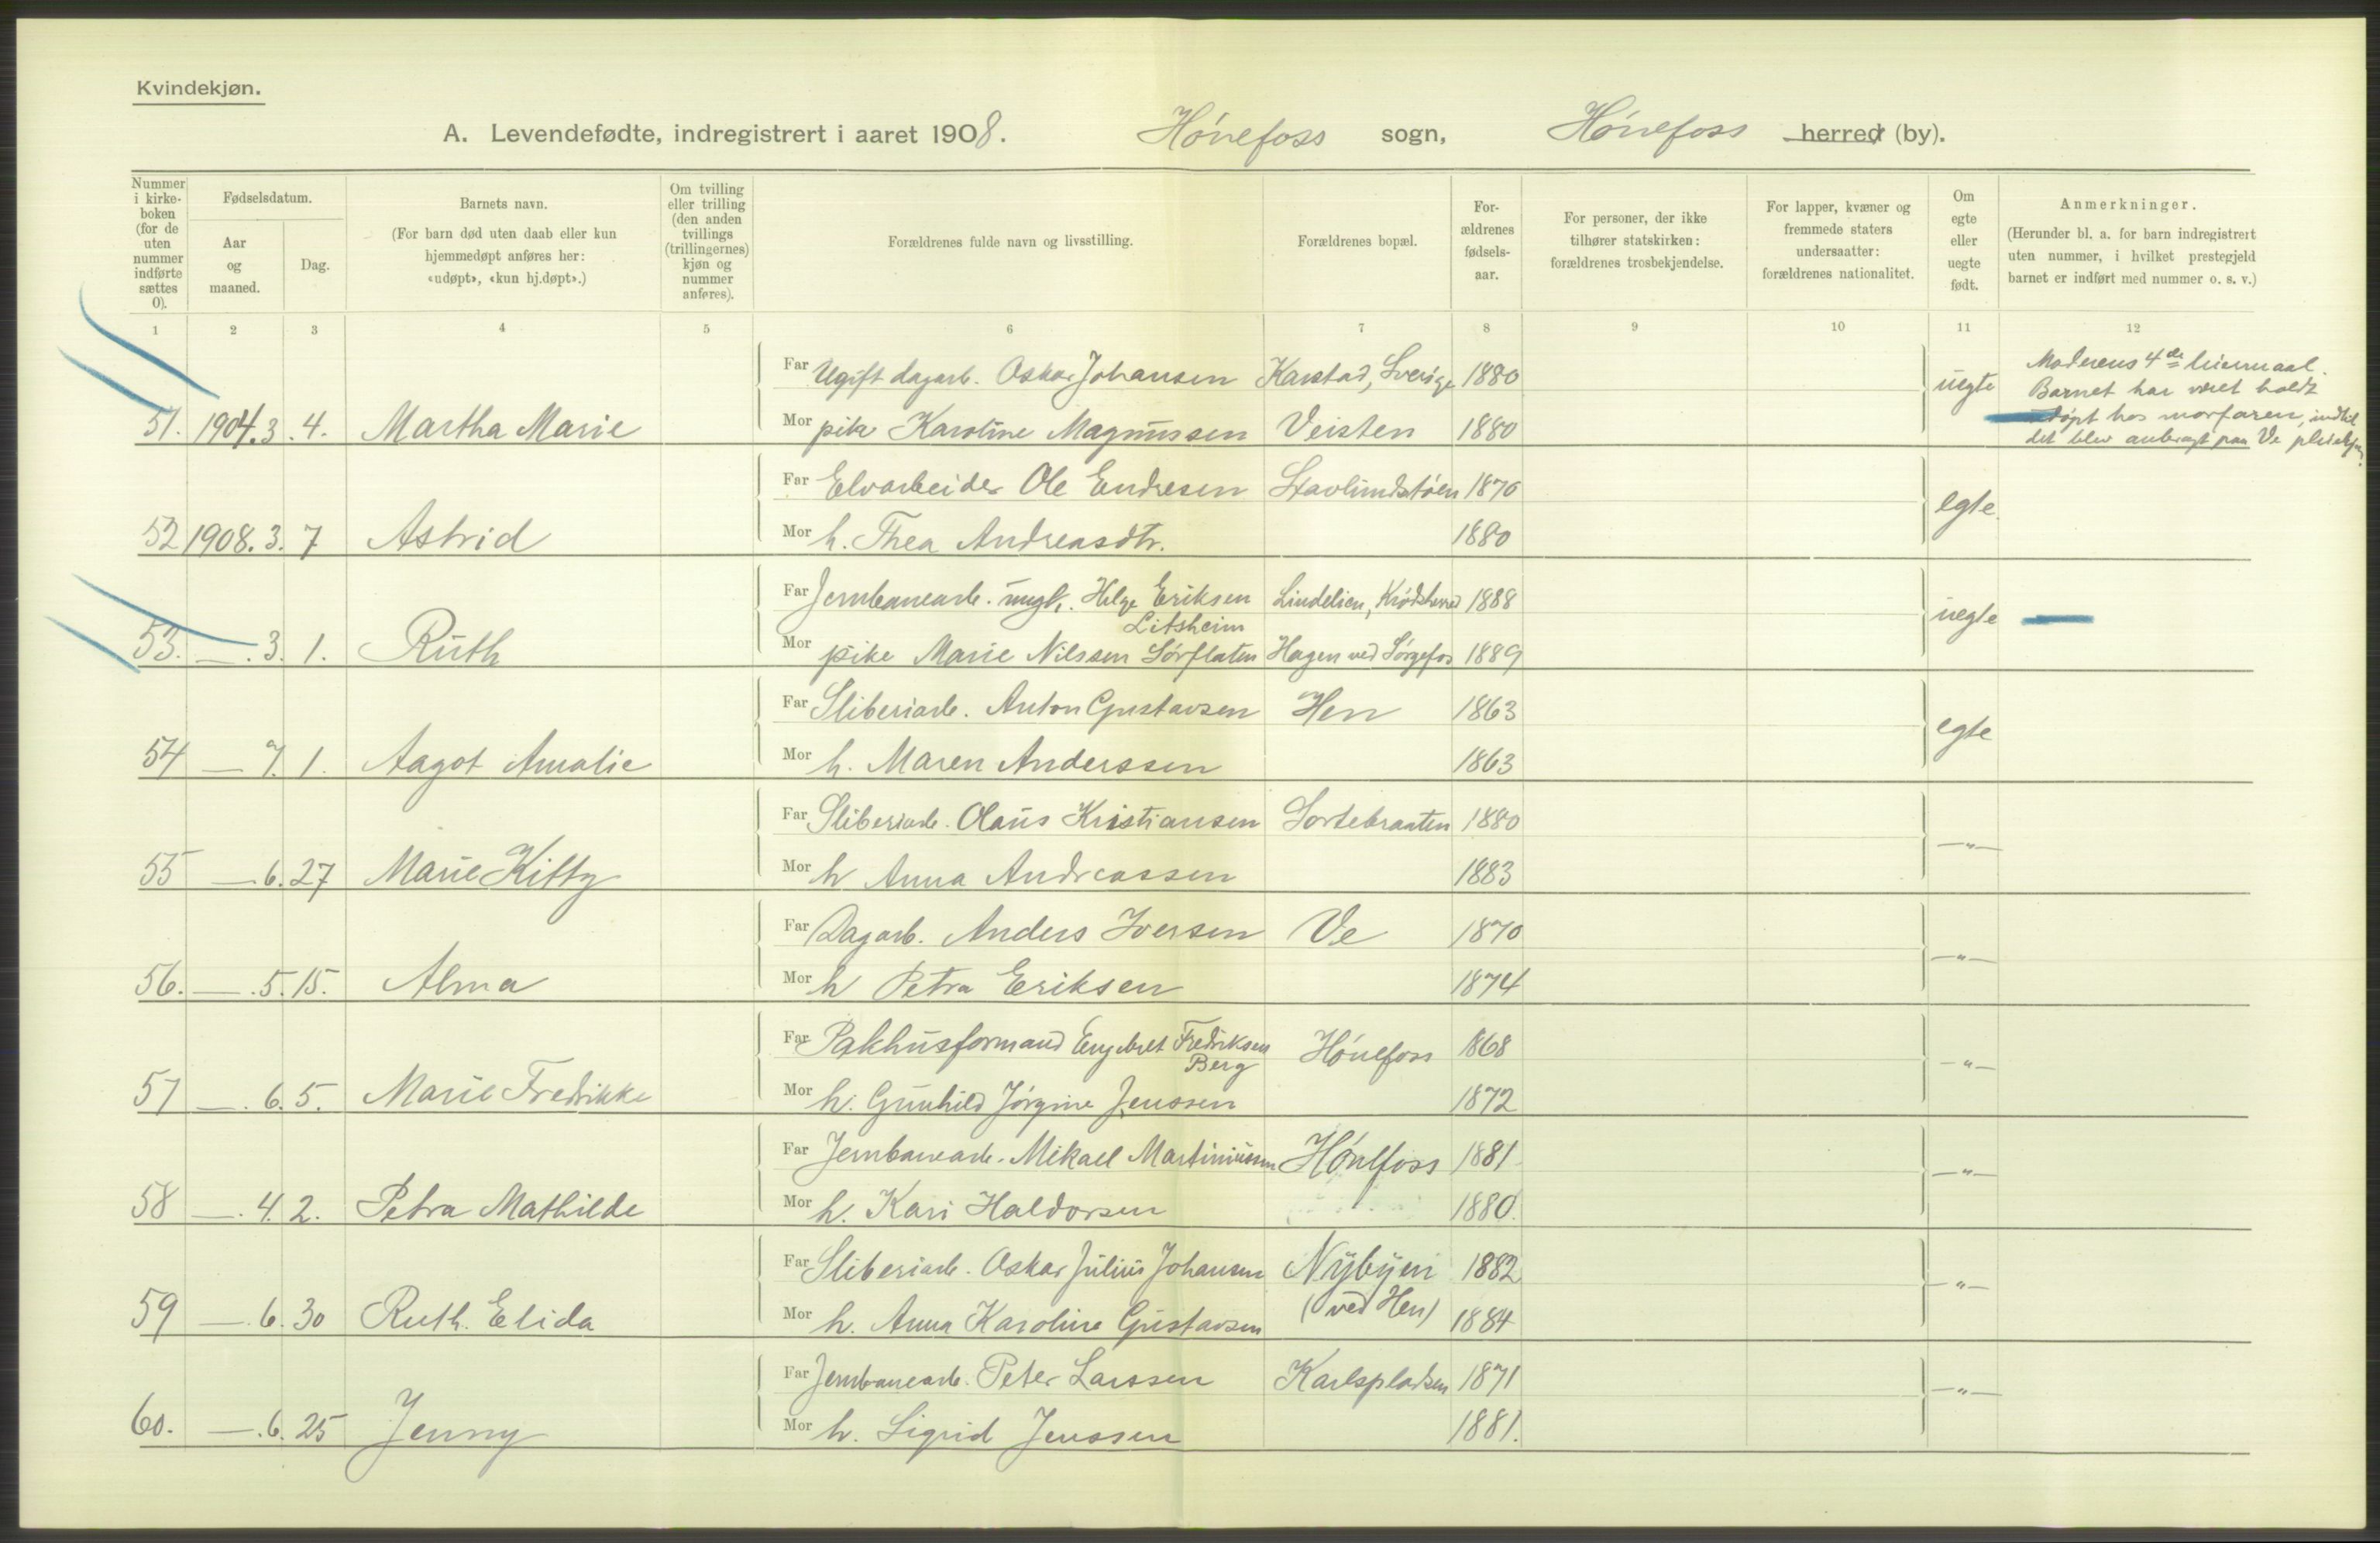 Kvindekjøn.
A. Levendefødte, indregistrert i aaret 1908. Hönefoss sogn, Hönefoss herred (by).
Nummer i kirke-boken (for de uten nummer indførte sættes 0).
Fødselsdatum.
Aar og maaned.
Dag.
Barnets navn.
(For barn død uten daab eller kun hjemmedøpt anføres her: «udøpt», «kun hj.døpt».)
Om tvilling eller trilling (den anden tvillings (trillingernes) kjøn og nummer anføres).
Forældrenes fulde navn og livsstilling.
Forældrenes bopæl.
For-ældrenes fødsels-aar.
For personer, der ikke tilhører statskirken: forældrenes trosbekjendelse.
For lapper, kvæner og fremmede staters undersaatter: forældrenes nationalitet.
Om egte eller uegte født.
Anmerkninger.
(Herunder bl. a. for barn indregistrert uten nummer, i hvilket prestegjeld barnet er indført med nummer o. s. v.)
1 2 3 4 5 6 7 8 9 10 11 12
Far Ugift dagarb. Oskar Johansen Karstad, Sverige 1880 uegte Moderens 4de leiermaal.
Barnet har været holdt
51. 1904. 3. 4. Martha Marie Mor pike Karoline Magnussen Veisten 1880 udøpt hos morfaren, indtil
det blev anbragt paa Ve pleiehjem.
Far Elvarbeider Ole Endresen Stavlundstöen 1876 egte
52 1908. 3. 7 Astrid Mor h. Thea Andreasdtr. 1880
Far Jernbanearb. ungk. Helge Eriksen Litsheim Lindelien, Krödsherred 1888 uegte
53. —. 3. 1. Ruth Mor pike Marie Nilssen Sörflaten Hagen ved Sörgefos 1889
Far Sliberiarb. Anton Gustavsen Hen 1863 egte
54 — 7. 1. Aagot Amalie Mor h. Maren Anderssen 1863
Far Sliberiarb. Olaus Kristiansen Sortebraaten 1880 —"—
55 —. 6. 27 Marie Kitty Mor h Anna Andreassen 1883
Far Dagarb. Anders Iversen Ve 1870 —"—
56. —. 5. 15. Alma Mor h Petra Eriksen 1874
Far Pakhusformand Engebret Fredriksen Berg Hönefoss 1868 —"—
57 —. 6. 5. Marie Fredrikke Mor h. Gunhild Jörgine Jenssen 1872
Far Jernbanearb. Mikael Martiniussen Hönefoss 1881 —"—
58 —. 4. 2. Petra Mathilde Mor h. Kari Haldorsen 1880.
Far Sliberiarb. Oskar Julius Johansen Nybyen 1882 —"—
59 —. 6. 30 Ruth Elida Mor h. Anna Karoline Gustavsen (ved Hen) 1884
Far Jernbanearb. Peter Larssen Karlspladsen 1871 —"—
60. —. 6. 25 Jenny Mor h. Sigrid Jenssen 1881.